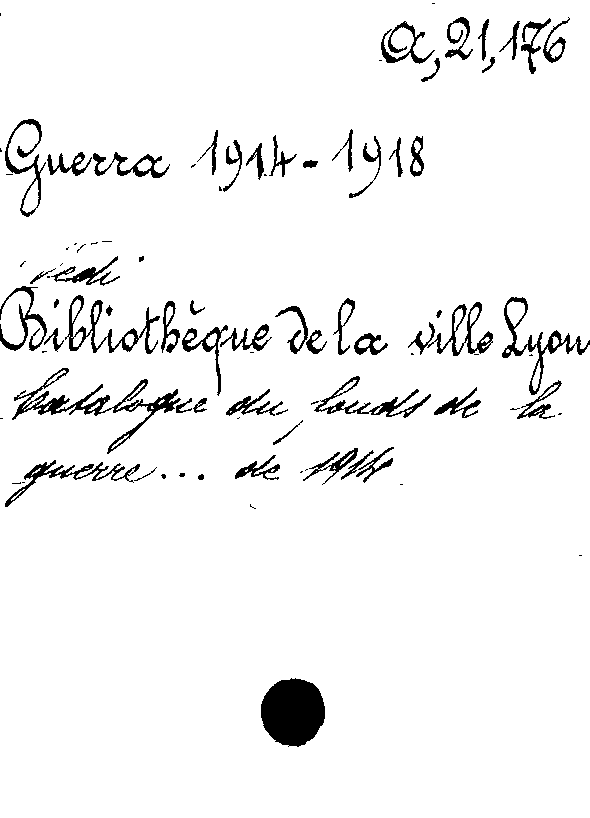 α, 21, 176
Guerra 1914-1918
Vedi
Bibliothèque de la ville Lyon
Catalogue du fonds de la
guerre... de 1914